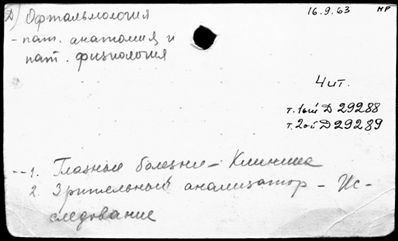 Д) Офтальмология
16.9.63 МР
- пат. анатомия и
пат. физиология
4 ит.
т.1ый Д 29288
т.2ой Д 29289
--1. Глазные болезни - Клиника
2. Зрительный анализатор - Ис-
следование